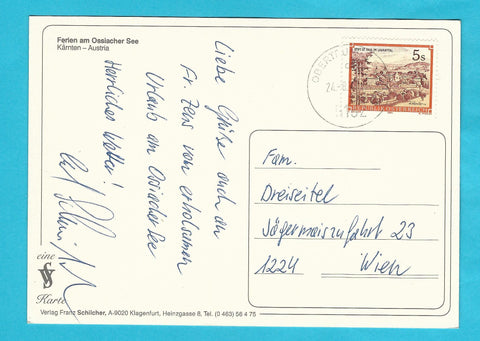 Ferien am Ossiacher See
Kärnten – Austria
Liebe Grüße auch an
Fr. Zens von erholsamen
Urlaub am Ossiacher See
Herrliches Wetter!
5s
REPUBLIK ÖSTERREICH
Fam.
Dreiseitel
Jägermaiszufahrt 23
1224 Wien
eine
Karte
Verlag Franz Schilcher, A-9020 Klagenfurt, Heinzgasse 8, Tel. (0 463) 56 4 75